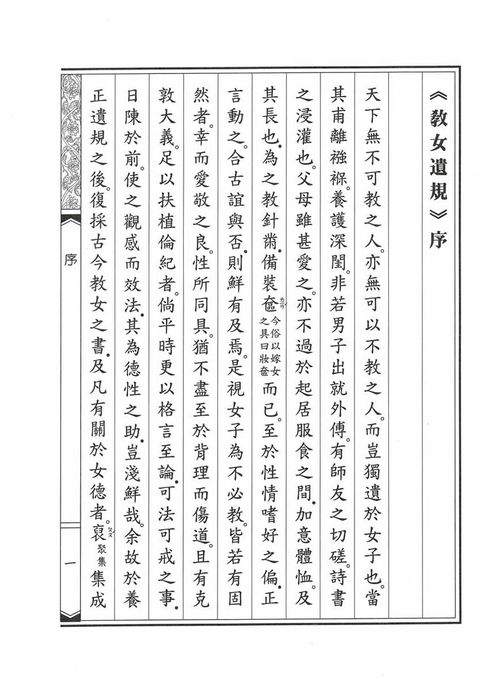 《教女遺規》序
天下無不可教之人。亦無可以不教之人。而豈獨遺於女子也。當
其甫離襁褓。養護深閨。非若男子出就外傅。有師友之切磋。詩書
之浸灌也。父母雖甚愛之。亦不過於起居服食之間。加意體恤。及
其長也。為之教針黹。備裝奩ㄌㄧㄢˊ今俗以嫁女之具曰妝奩而已。至於性情嗜好之偏。正
言動之。合古誼與否。則鮮有及焉。是視女子為不必教。皆若有固
然者。幸而愛敬之良。性所同具。猶不盡至於背理而傷道。且有克
敦大義。足以扶植倫紀者。倘平時更以格言至論。可法可戒之事。
日陳於前。使之觀感而效法。其為德性之助。豈淺鮮哉。余故於養
正遺規之後。復採古今教女之書。及凡有關於女德者。裒ㄆㄡˊ聚集集成
序
一